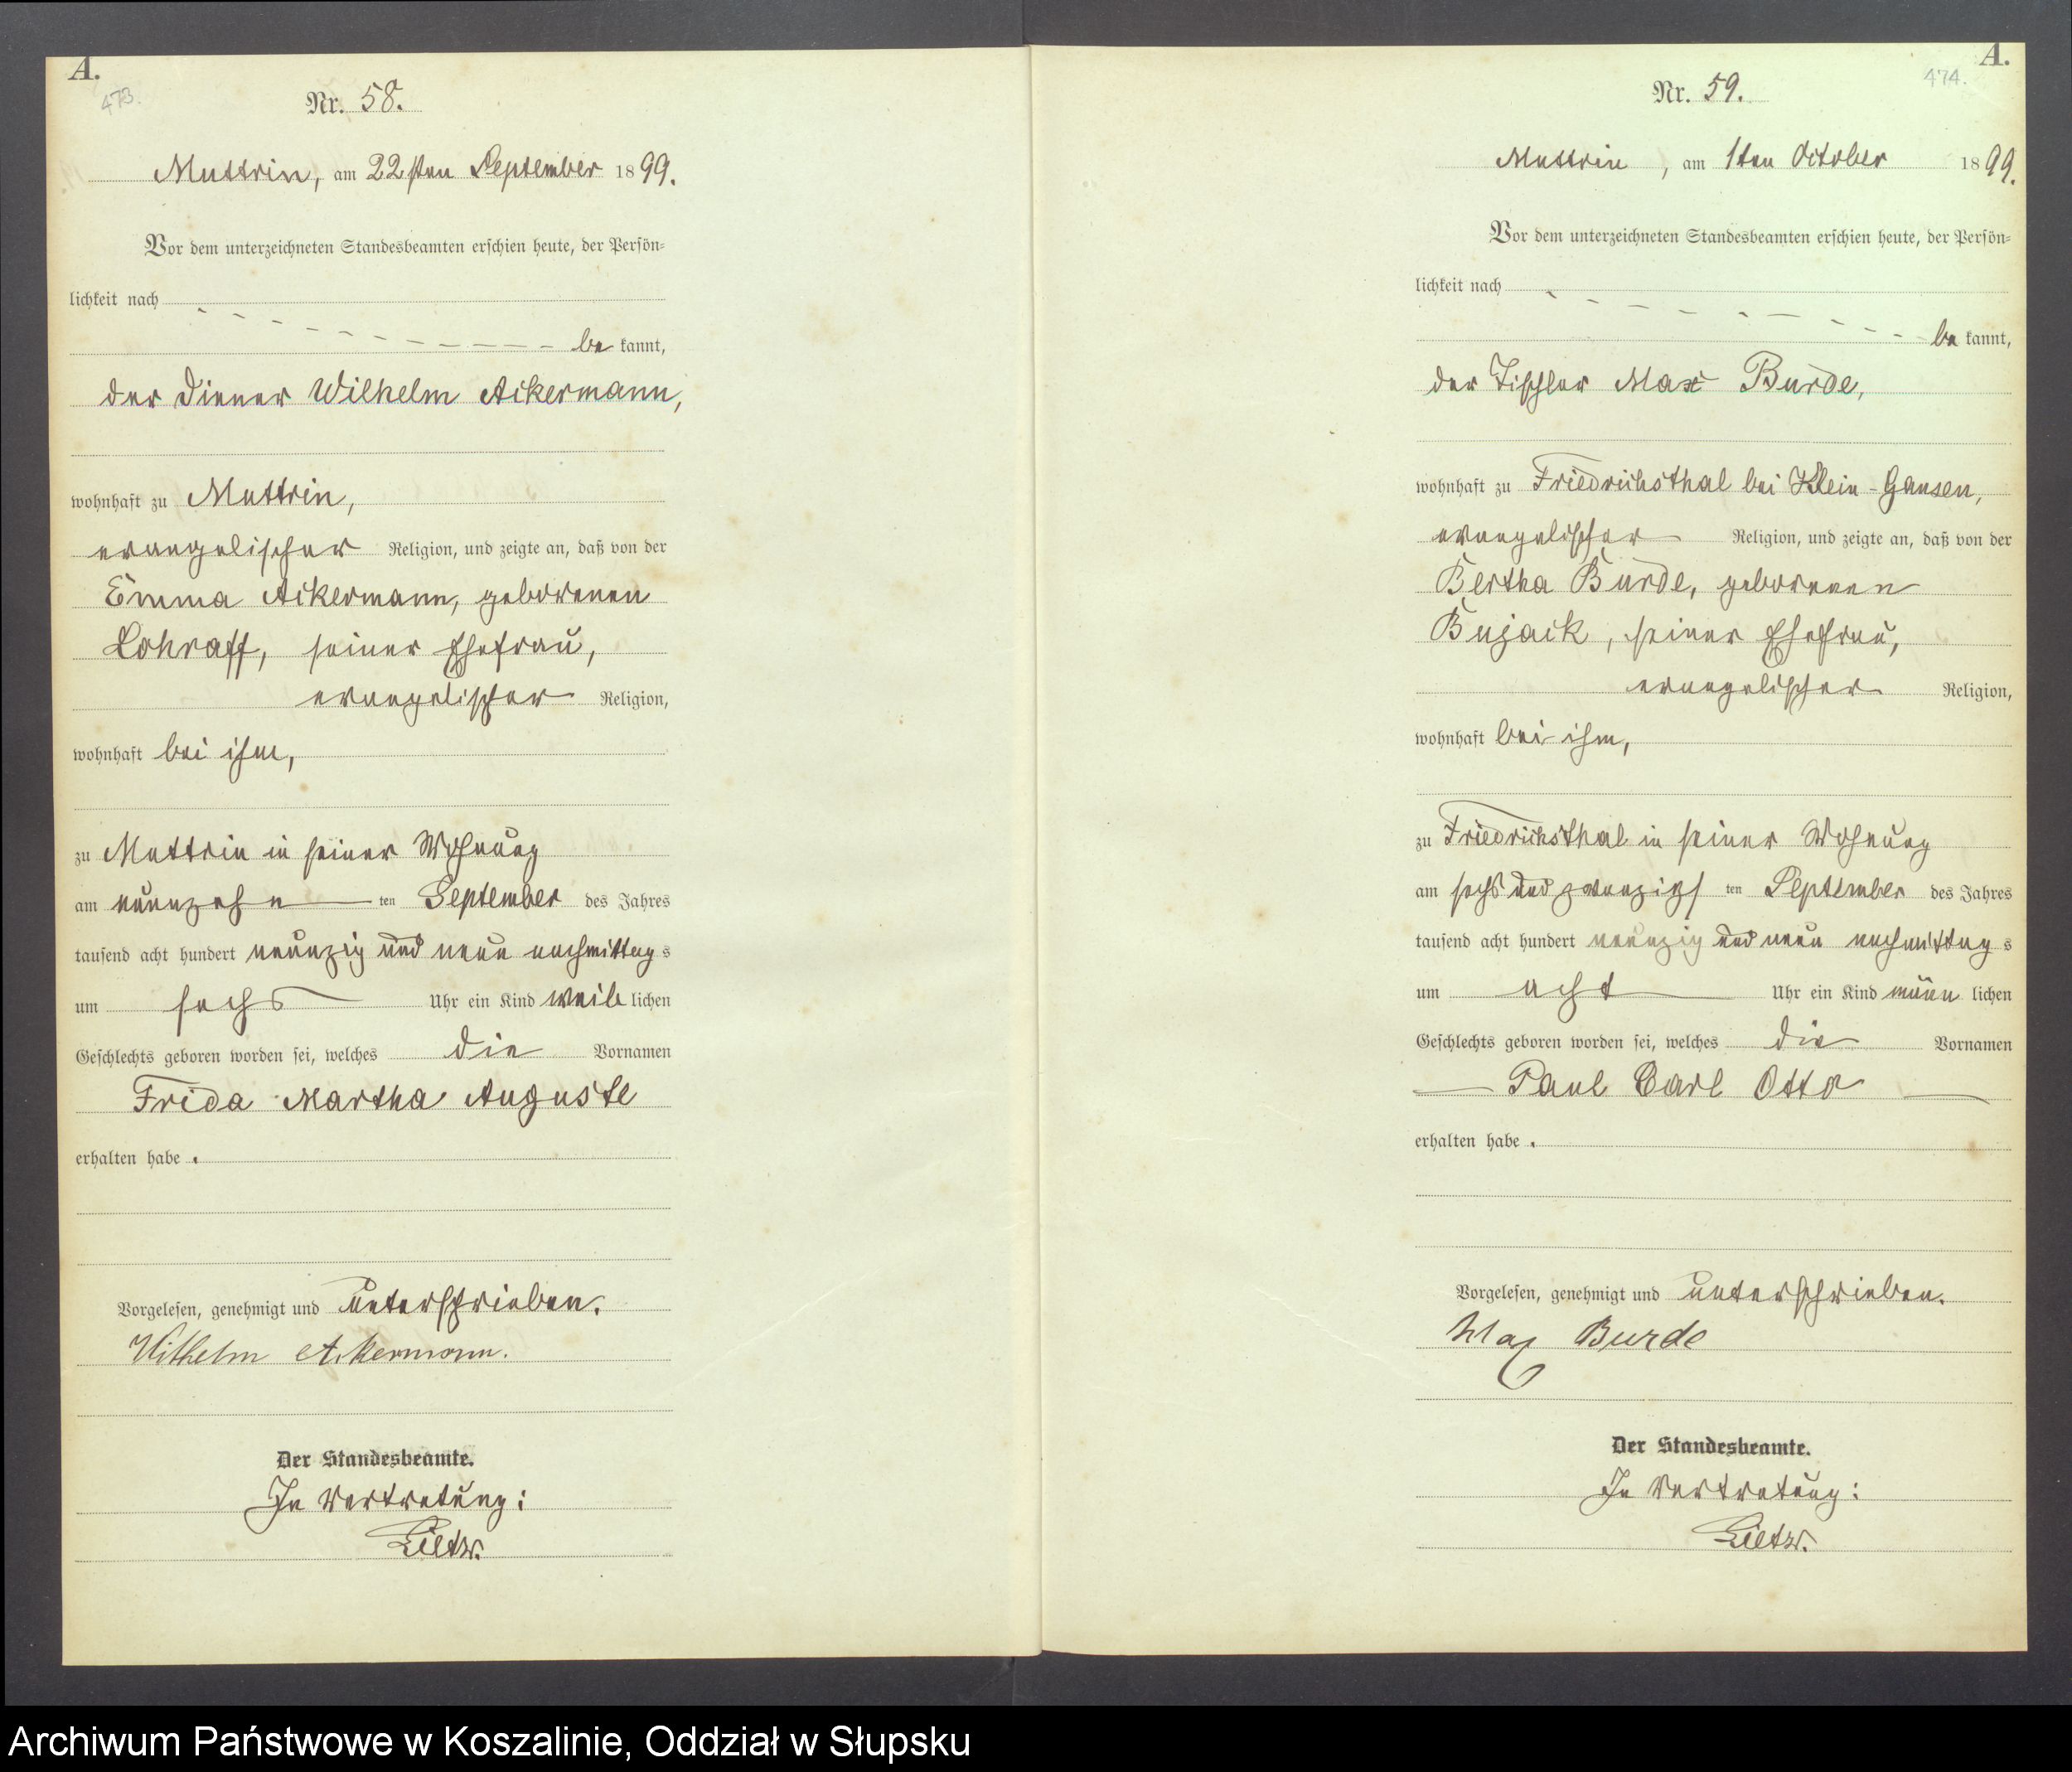 A.
473.
Nr. 58.
Muttrin, am 22sten September 1899.
Vor dem unterzeichneten Standesbeamten erschien heute, der Persön-
lichkeit nach
be kannt,
der Diener Wilhelm Ackermann,
wohnhaft zu Muttrin,
evangelischer Religion, und zeigte an, daß von der
Emma Ackermann, geborenen
Lohraff, seiner Ehefrau,
evangelischer Religion,
wohnhaft bei ihm,
zu Muttrin in seiner Wohnung
am neunzehn ten September des Jahres
tausend acht hundert neunzig und neun nachmittag s
um sechs Uhr ein Kind weib lichen
Geschlechts geboren worden sei, welches die Vornamen
Frida Martha Auguste
erhalten habe.
Vorgelesen, genehmigt und unterschrieben.
Wilhelm Ackermann.
Der Standesbeamte.
In Vertretung:
Lietz.
A.
474.
Nr. 59.
Muttrin, am 1ten October 1899.
Vor dem unterzeichneten Standesbeamten erschien heute, der Persön-
lichkeit nach
be kannt,
der Tischler Max Burde,
wohnhaft zu Friedrichsthal bei Klein-Gansen,
evangelischer Religion, und zeigte an, daß von der
Bertha Burde, geborenen
Bujack, seiner Ehefrau,
evangelischer Religion,
wohnhaft bei ihm,
zu Friedrichsthal in seiner Wohnung
am sechs und zwanzigs ten September des Jahres
tausend acht hundert neunzig und neun nachmittag s
um acht Uhr ein Kind männ lichen
Geschlechts geboren worden sei, welches die Vornamen
Paul Carl Otto
erhalten habe.
Vorgelesen, genehmigt und unterschrieben.
Max Burde
Der Standesbeamte.
In Vertretung:
Lietz.
Archiwum Państwowe w Koszalinie, Oddział w Słupsku